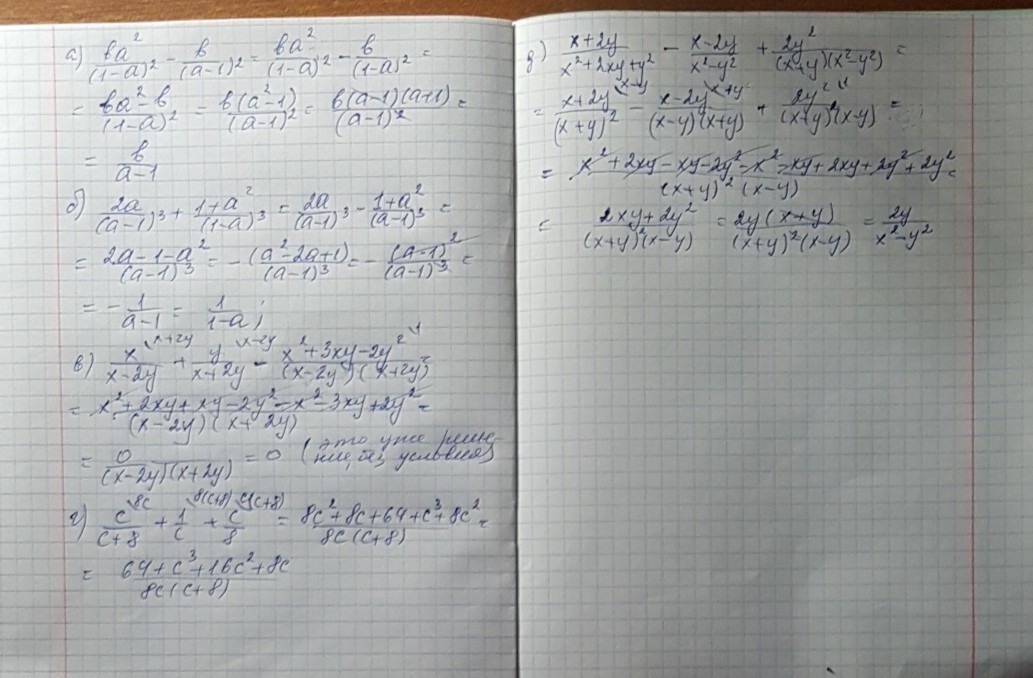 а) ba²/(1-a)² - b/(a-1)² = ba²/(1-a)² - b/(1-a)² =
= (ba²-b)/(1-a)² = b(a²-1)/(a-1)² = b(a-1)(a+1)/(a-1)² =
= b/(a-1)
б) 2a/(a-1)³ + (1+a²)/(1-a)³ = 2a/(a-1)³ - (1+a²)/(a-1)³ =
= (2a-1-a²)/(a-1)³ = -(a²-2a+1)/(a-1)³ = -(a-1)²/(a-1)³ =
= -1/(a-1) = 1/(1-a);
в) x\x+2y/(x-2y) + y\x-2y/(x+2y) - (x²+3xy-2y²)\1/(x-2y)(x+2y) =
= (x²+2xy+xy-2y²-x²-3xy+2y²)/(x-2y)(x+2y) =
= 0/(x-2y)(x+2y) = 0 (это уже реше-
ние, без условия)
г) c\8c/(c+8) + 1\8(c+8)/c + c\c(c+8)/8 = (8c²+8c+64+c³+8c²)/8c(c+8) =
= (64+c³+16c²+8c)/8c(c+8)
д) (x+2y)/(x²+2xy+y²) - (x-2y)/(x²-y²) + 2y²/(x+y)(x²-y²) =
= (x+2y)\x-y/(x+y)² - (x-2y)\x+y/(x-y)(x+y) + 2y²\1/(x+y)²(x-y) =
= (x²+2xy-xy-2y²-x²-xy+2xy+2y²+2y²)/(x+y)²(x-y) =
= (2xy+2y²)/(x+y)²(x-y) = 2y(x+y)/(x+y)²(x-y) = 2y/(x²-y²)